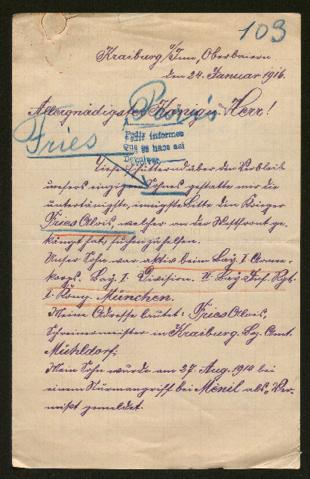 103
Kraiburg a/Inn, Oberbaiern
den 24. Januar 1916.
Allergnädigster König u. Herr!
Fries
Pedir informes
que se hace así
unseres einzigen Sohnes gestatte mir die
untertänigste, innigste Bitte den Krieger
Fries Alois, welcher an der Westfront ge-
kämpft hat, suchen zu helfen.
Unser Sohn war aktiv beim Bay. I. Armee-
korps. Bay. I. Division. II. Bay. Inf. Rgt.
1. Komp. München.
Meine Adresse lautet: Fries Alois,
Schreinermeister in Kraiburg Bz. Amt.
Mühldorf.
Mein Sohn wurde am 27. Aug. 1914 bei
einem Sturmangriff bei Ménil als Ver-
mißt gemeldet.